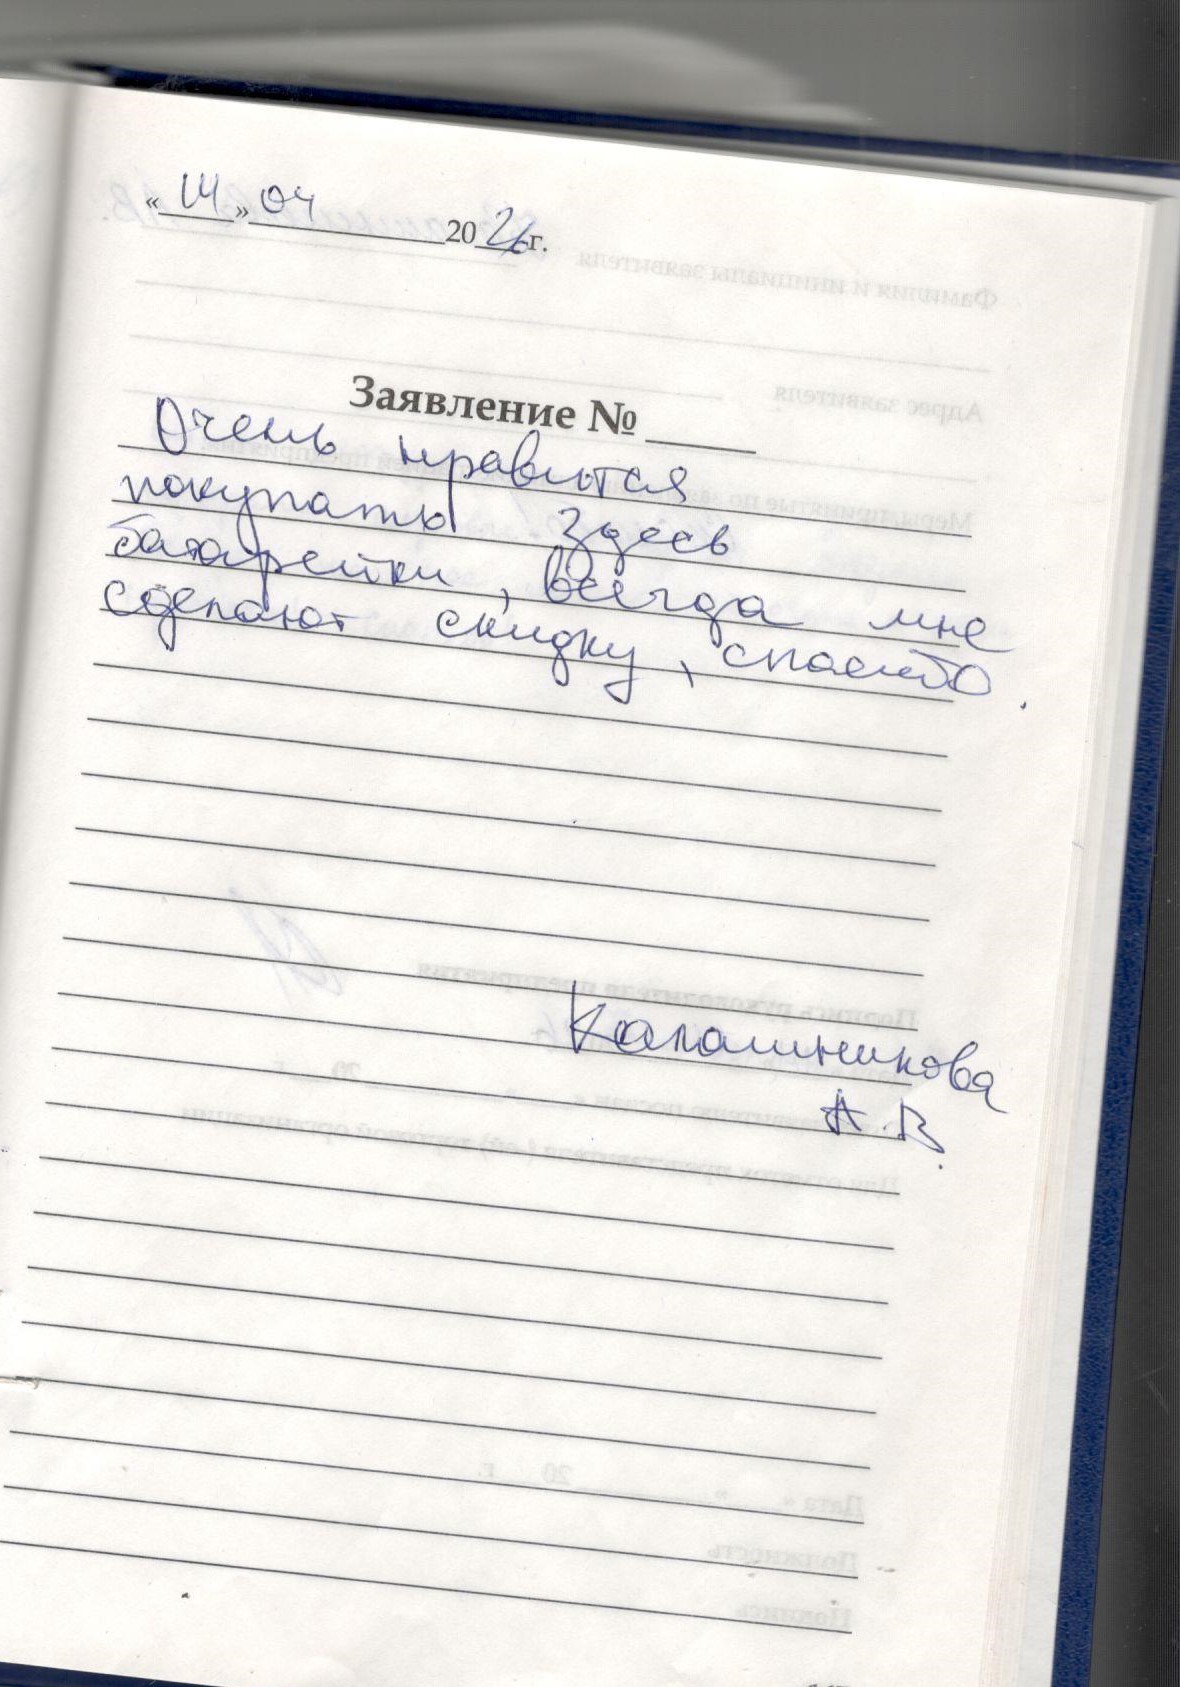 « 14 » 04 2026 г.
Заявление № ______
Очень нравится
покупать здесь
батарейки, всегда мне
сделают скидку, спасибо.
Калашникова
А.В.